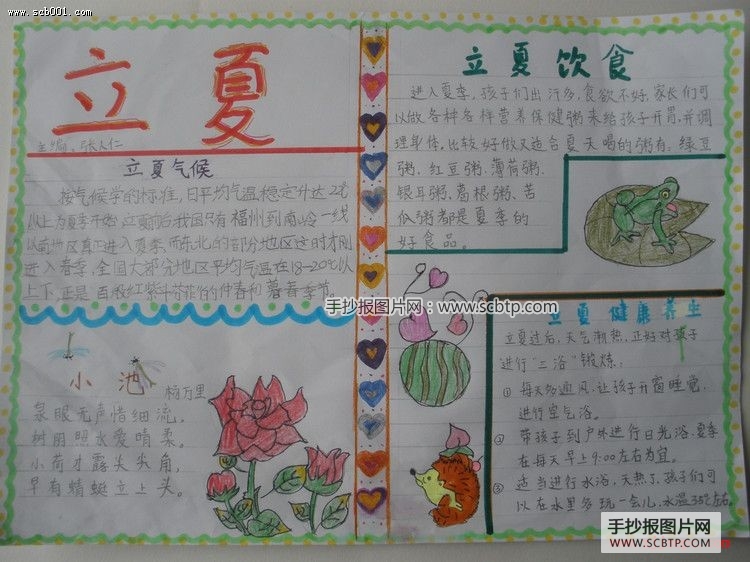 www.scb001.com
立夏
主编:张人仁
立夏气候
按气候学的标准,日平均气温稳定升达22℃
以上为夏季开始,立夏前后,我国只有福州到南岭一线
以南地区真正进入夏季,而东北的部分地区这时才刚
进入春季,全国大部分地区平均气温在18-20℃以
上下,正是百般红紫斗芳菲的仲春和暮春季节
小池 杨万里
泉眼无声惜细流,
树阴照水爱晴柔。
小荷才露尖尖角,
早有蜻蜓立上头。
立夏饮食
进入夏季,孩子们出汗多,食欲不好,家长们可
以做各种各样营养保健粥来给孩子开胃,并调
理身体,比较好做又适合夏天喝的粥有:绿豆
粥、红豆粥、薄荷粥、
银耳粥、葛根粥、苦
瓜粥都是夏季的
好食品。
手抄报图片网:www.scbtp.com
立夏健康养生
立夏过后,天气渐热,正好对孩子
进行“三浴”锻炼:
① 每天多通风,让孩子开窗睡觉,
进行空气浴。
② 带孩子到户外进行日光浴,夏季
在每天早上9:00左右为宜。
③ 适当进行水浴,天热了,孩子们可
以在水里多玩一会儿,水温35℃左右。
手抄报图片网
WWW.SCBTP.COM